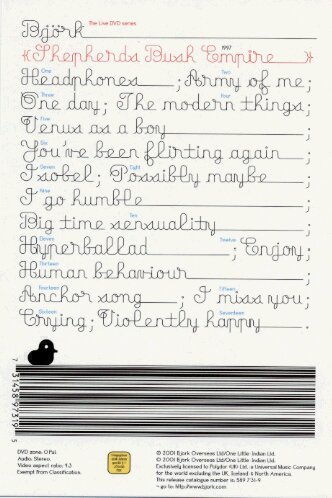 Björk The Live DVD series.
Shepherds Bush Empire 1997
One Two
Headphones ; Army of me;
Three Four
One day; The modern things;
Five
Venus as a boy ;
Six
You've been flirting again ;
Seven Eight
Isobel; Possibly maybe ;
Nine
I go humble ;
Ten
Big time sensuality ;
Eleven Twelve
Hyperballad ; Enjoy;
Thirteen
Human behaviour ;
Fourteen Fifteen
Anchor song ; I miss you;
Sixteen Seventeen
Crying; Violently happy .
DVD zone: 0 Pal.
Audio. Stereo.
Video aspect ratio: 4:3
Exempt from Classification.
© 2001 Bjork Overseas Ltd/One Little Indian Ltd.
℗ 2001 Bjork Overseas Ltd/One Little Indian Ltd.
Exclusively licensed to Polydor (UK) Ltd. a Universal Music Company
for the world excluding the UK, Iceland & North America.
This release catalogue number is: 589 731-9
– go to: http://www.bjork.com